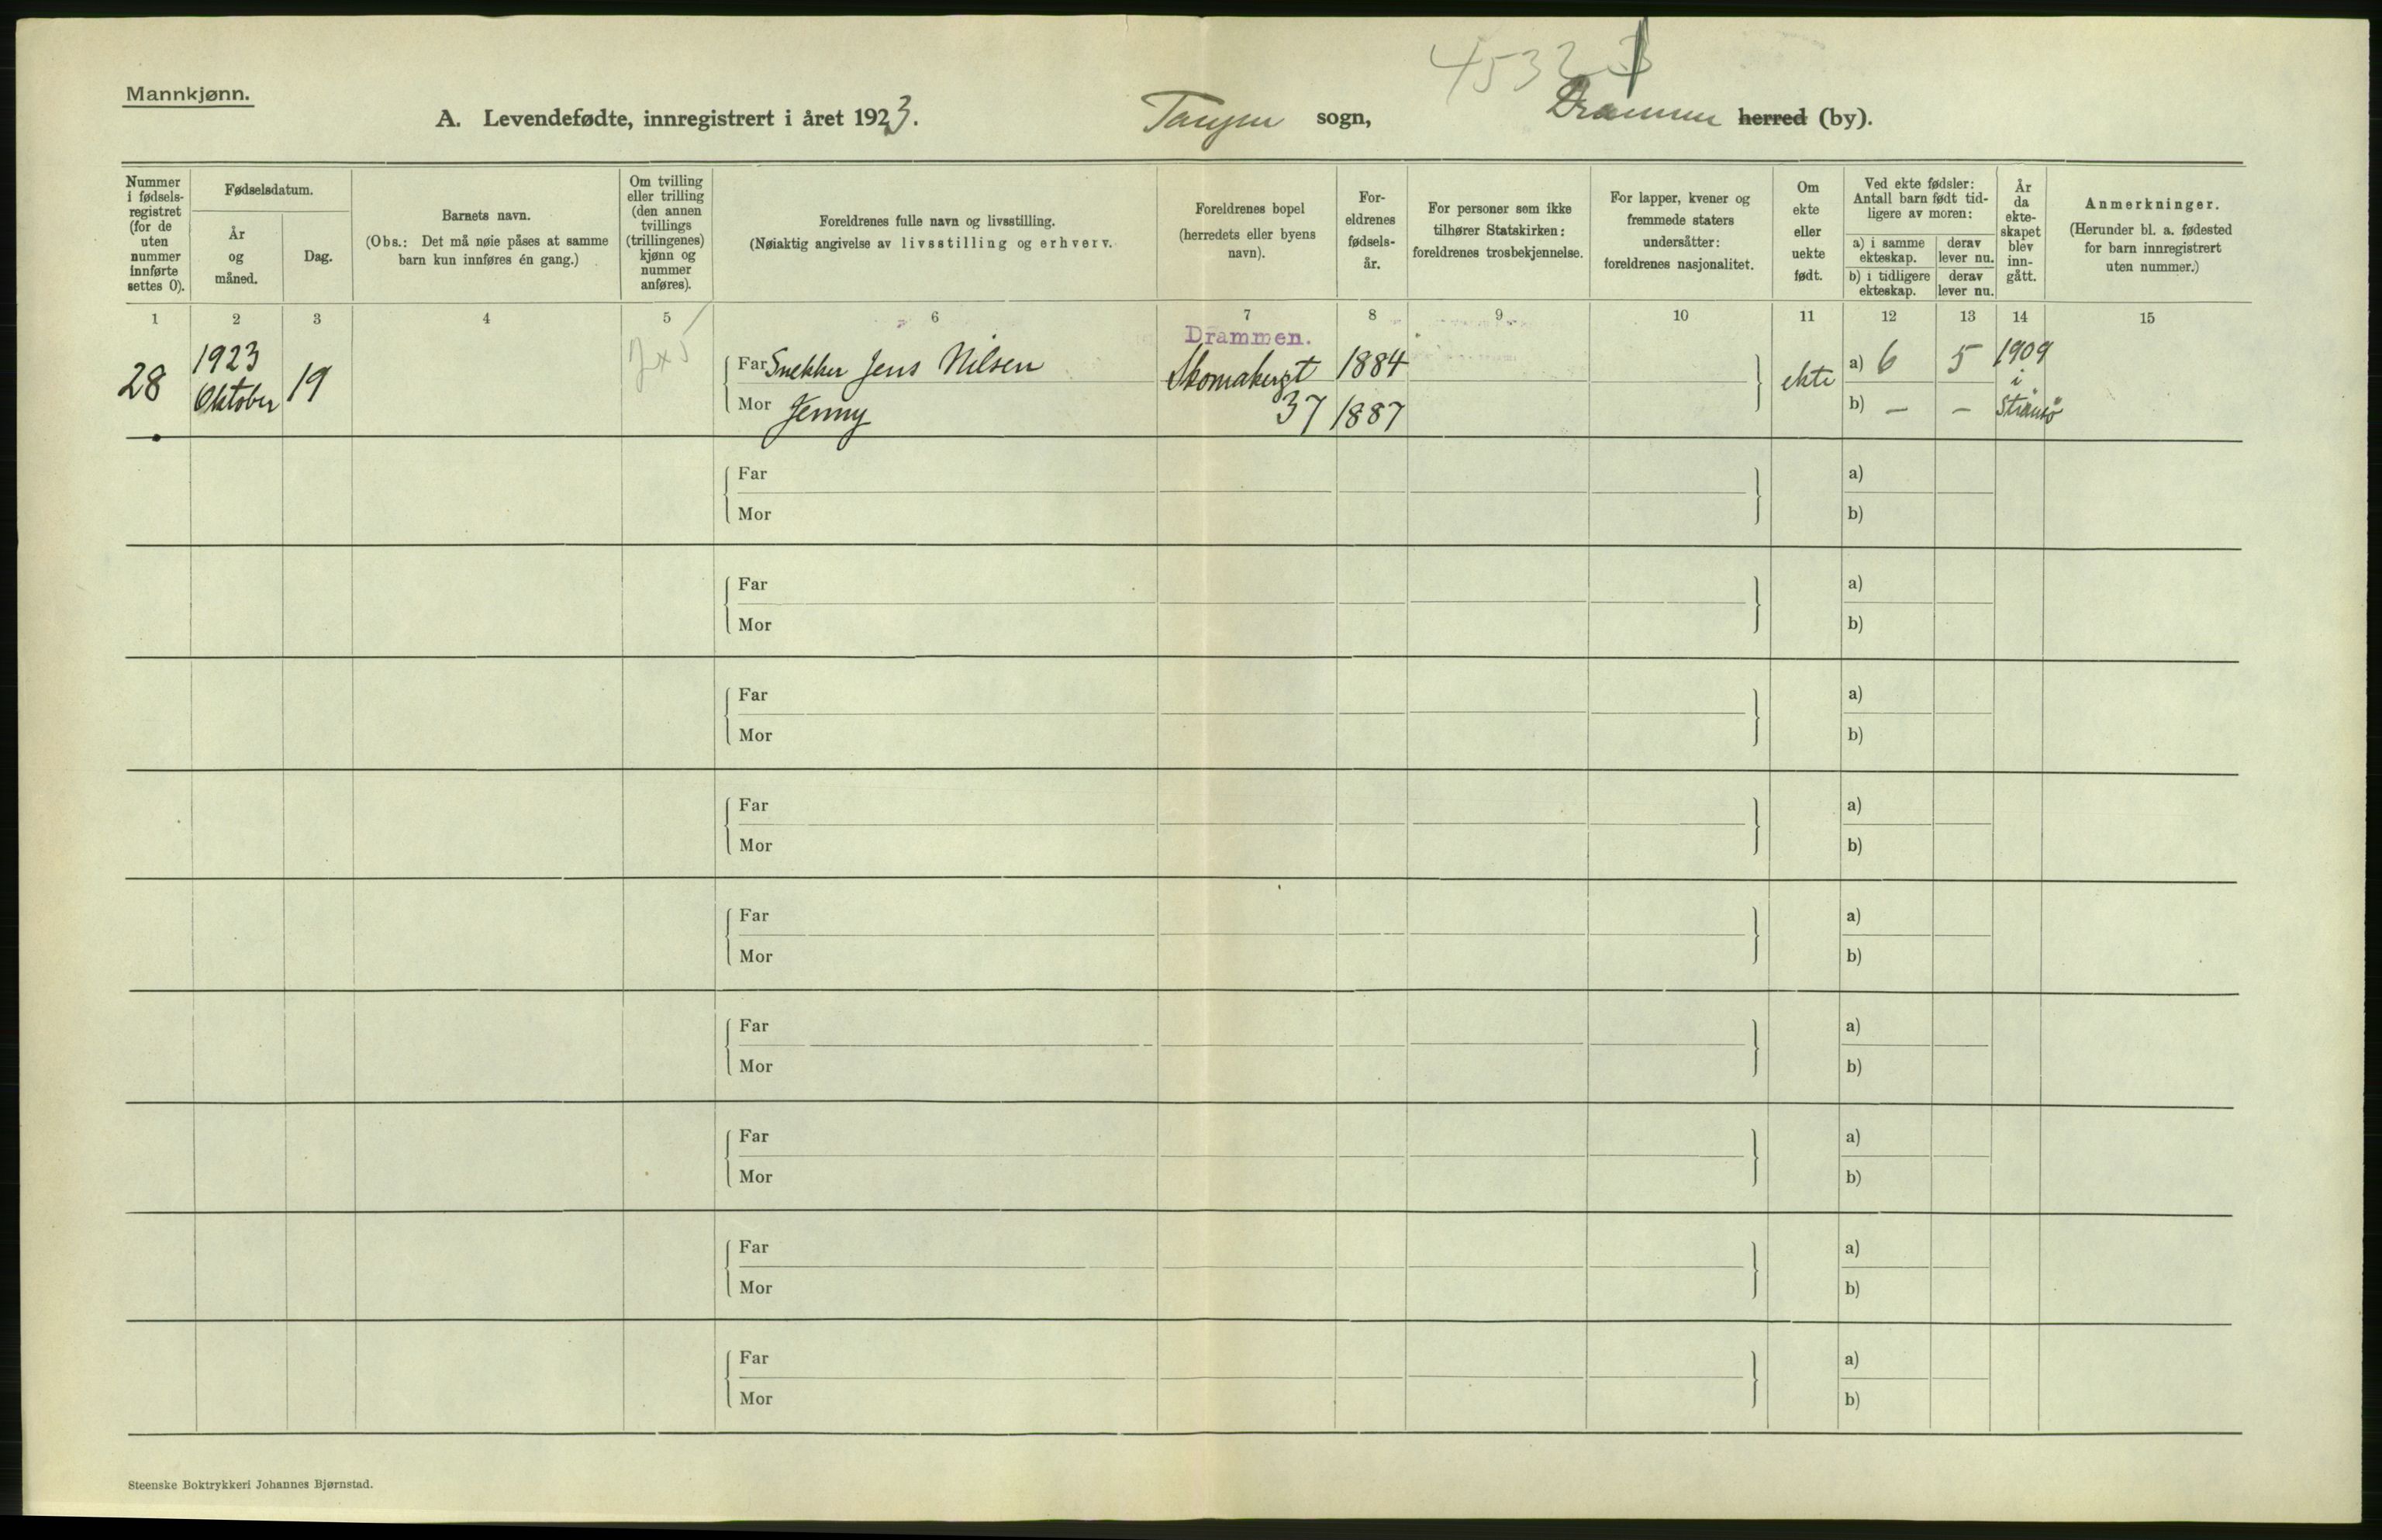 4532
Mannkjønn.
A. Levendefødte, innregistrert i året 1923.
Tangen sogn,
Drammen herred (by).
Nummer
i fødsels-
registret
(for de
uten
nummer
innførte
settes 0).
Fødselsdatum.
År
og
måned.
Dag.
Barnets navn.
(Obs.: Det må nøie påses at samme
barn kun innføres én gang.)
Om tvilling
eller trilling
(den annen
tvillings
(trillingenes)
kjønn og
nummer
anføres).
Foreldrenes fulle navn og livsstilling.
(Nøiaktig angivelse av livsstilling og erhverv.
Foreldrenes bopel
(herredets eller byens
navn).
For-
eldrenes
fødsels-
år.
For personer som ikke
tilhører Statskirken:
foreldrenes trosbekjennelse.
For lapper, kvener og
fremmede staters
undersåtter:
foreldrenes nasjonalitet.
Om
ekte
eller
uekte
født.
Ved ekte fødsler:
Antall barn født tid-
ligere av moren:
a) i samme
ekteskap.
derav
lever nu.
b) i tidligere
ekteskap.
derav
lever nu.
År
da
ekte-
skapet
blev
inn-
gått.
Anmerkninger.
(Herunder bl. a. fødested
for barn innregistrert
uten nummer.)
1 2 3 4 5 6 7 8 9 10 11 12 13 14 15
28
1923
Oktober
19
Far Snekker Jens Nilsen
Mor Jenny
Drammen.
Skomakergt
37
1884
1887
ekte
a) 6 5
b) — —
1909
i
Strømsø
Far a)
Mor b)
Far a)
Mor b)
Far a)
Mor b)
Far a)
Mor b)
Far a)
Mor b)
Far a)
Mor b)
Far a)
Mor b)
Far a)
Mor b)
Far a)
Mor b)
Steenske Boktrykkeri Johannes Bjørnstad.